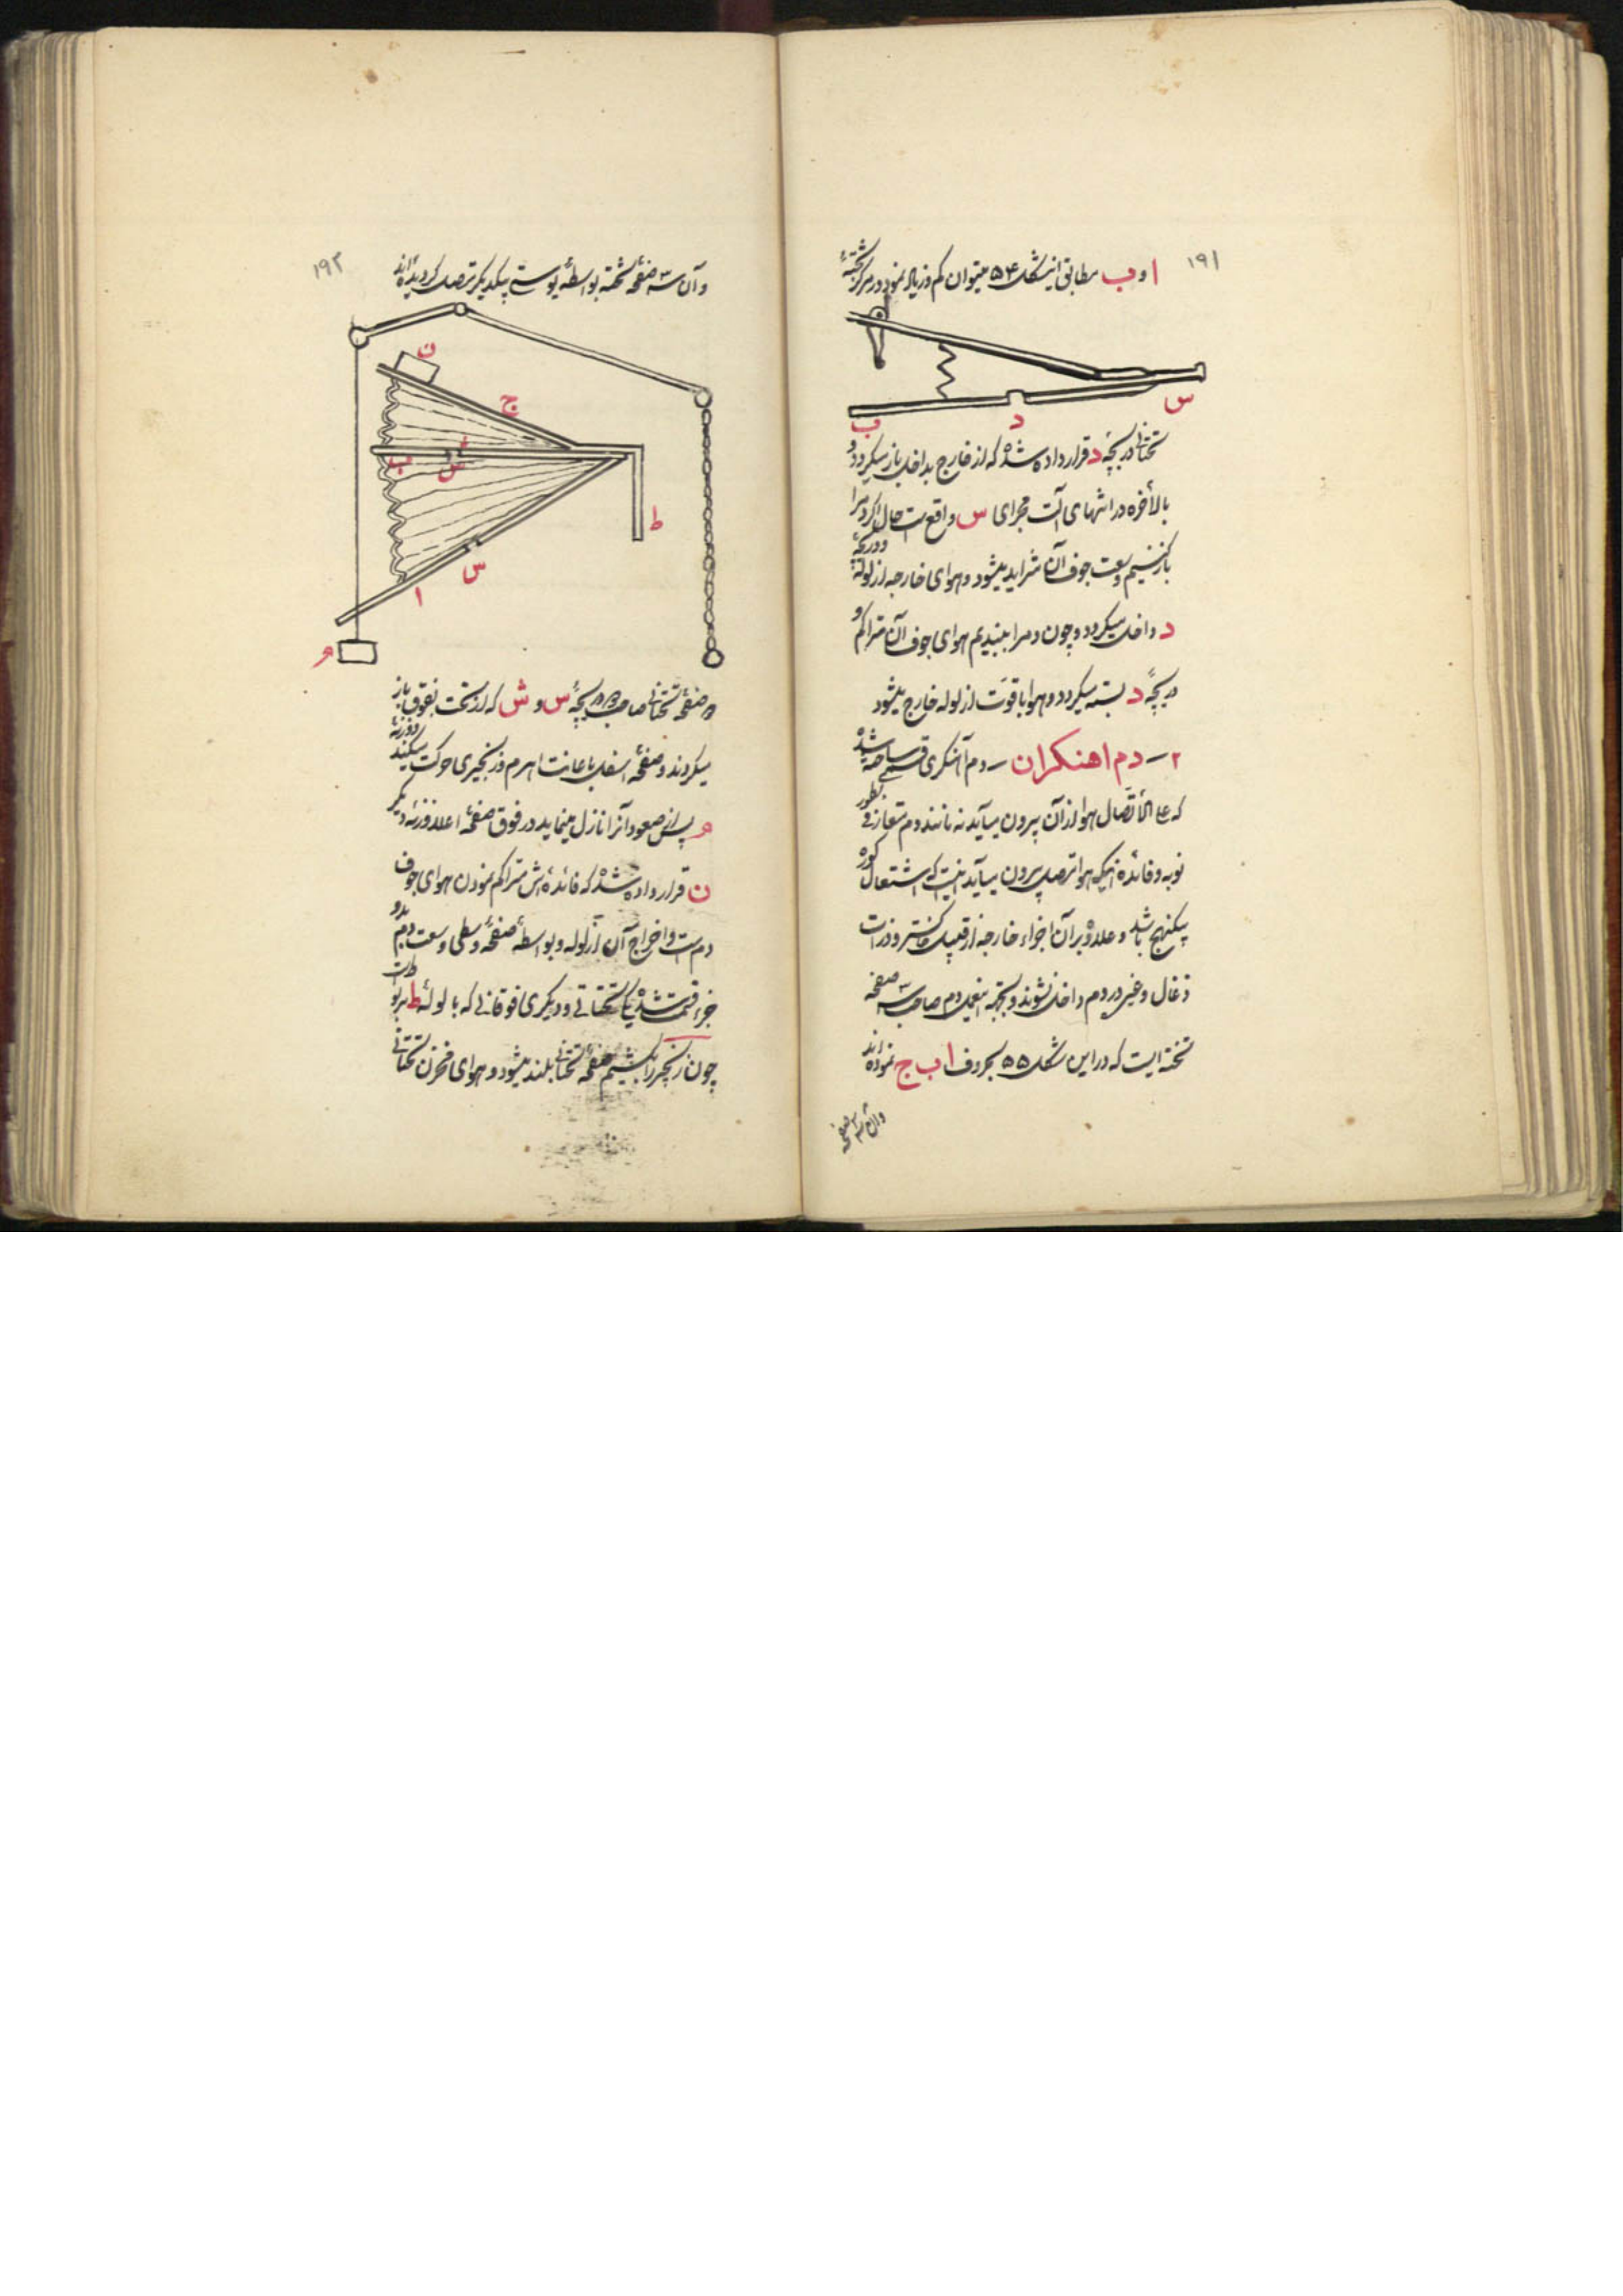 ۱۹۱
ا و ب مطابق اینشکل ۵۴ میتوان کم و زیاد نمود در مرکز تختهٔ
س
د
ب
تحتانی دریچهٔ د قرار داده شده که از خارج بداخل باز میگردد و
بالأخره در انتهای آلت مجرای س واقع است حال اگر دم را
باز کنیم وسعت جوف آن متزاید میشود و هوای خارجه از لوله و دریچهٔ
د داخل میگردد و چون دم را ببندیم هوای جوف آن متراکم و
دریچهٔ د بسته میگردد و هوا با قوت از لوله خارج میشود
۲ ـ دم اهنکران ـ دم آهنگری قسمی ساخته شده
که علی الأتصال هوا از آن بیرون میآید نه مانند دم متعارفی بطور
نوبه و فائده اینکه هوا متصل بیرون میآید اینست که اشتعال کوره
بیکنهج باشد و علاوه بر آن اجزاء خارجه از قبیل خاکستر و ذرات
ذغال و غیره در دم داخل نشوند و بجهة اینعمل دم صاحب سه صفحه
تخته ایست که در این شکل ۵۵ بحروف ا ب ج نموده اند
و آن سه صفحه
۱۹۲
و آن سه صفحهٔ تخته بواسطهٔ پوستی بیکدیگر متصل گردیده اند
ن
ج
ب
ش
ط
س
ا
م
دو صفحهٔ تحتانی صاحب دو دریچهٔ س و ش که از تحت بفوق باز
میگردند و صفحهٔ اسفل باعانت اهرم و زنجیری حرکت میکند و وزنهٔ
م پس از صعود آنرا نازل مینماید در فوق صفحهٔ اعلا وزنهٔ دیگر
ن قرار داده شده که فائده اش متراکم نمودن هوای جوف
دم است و اخراج آن از لوله و بواسطهٔ صفحهٔ وسطی وسعت دم بدو
جزء قسمت شده یکی تحتانی و دیگری فوقانی که با لولهٔ ط مربوط است
چون زنجیر را بکشیم صفحهٔ تحتانی بلند میشود و هوای مخزن تحتانی